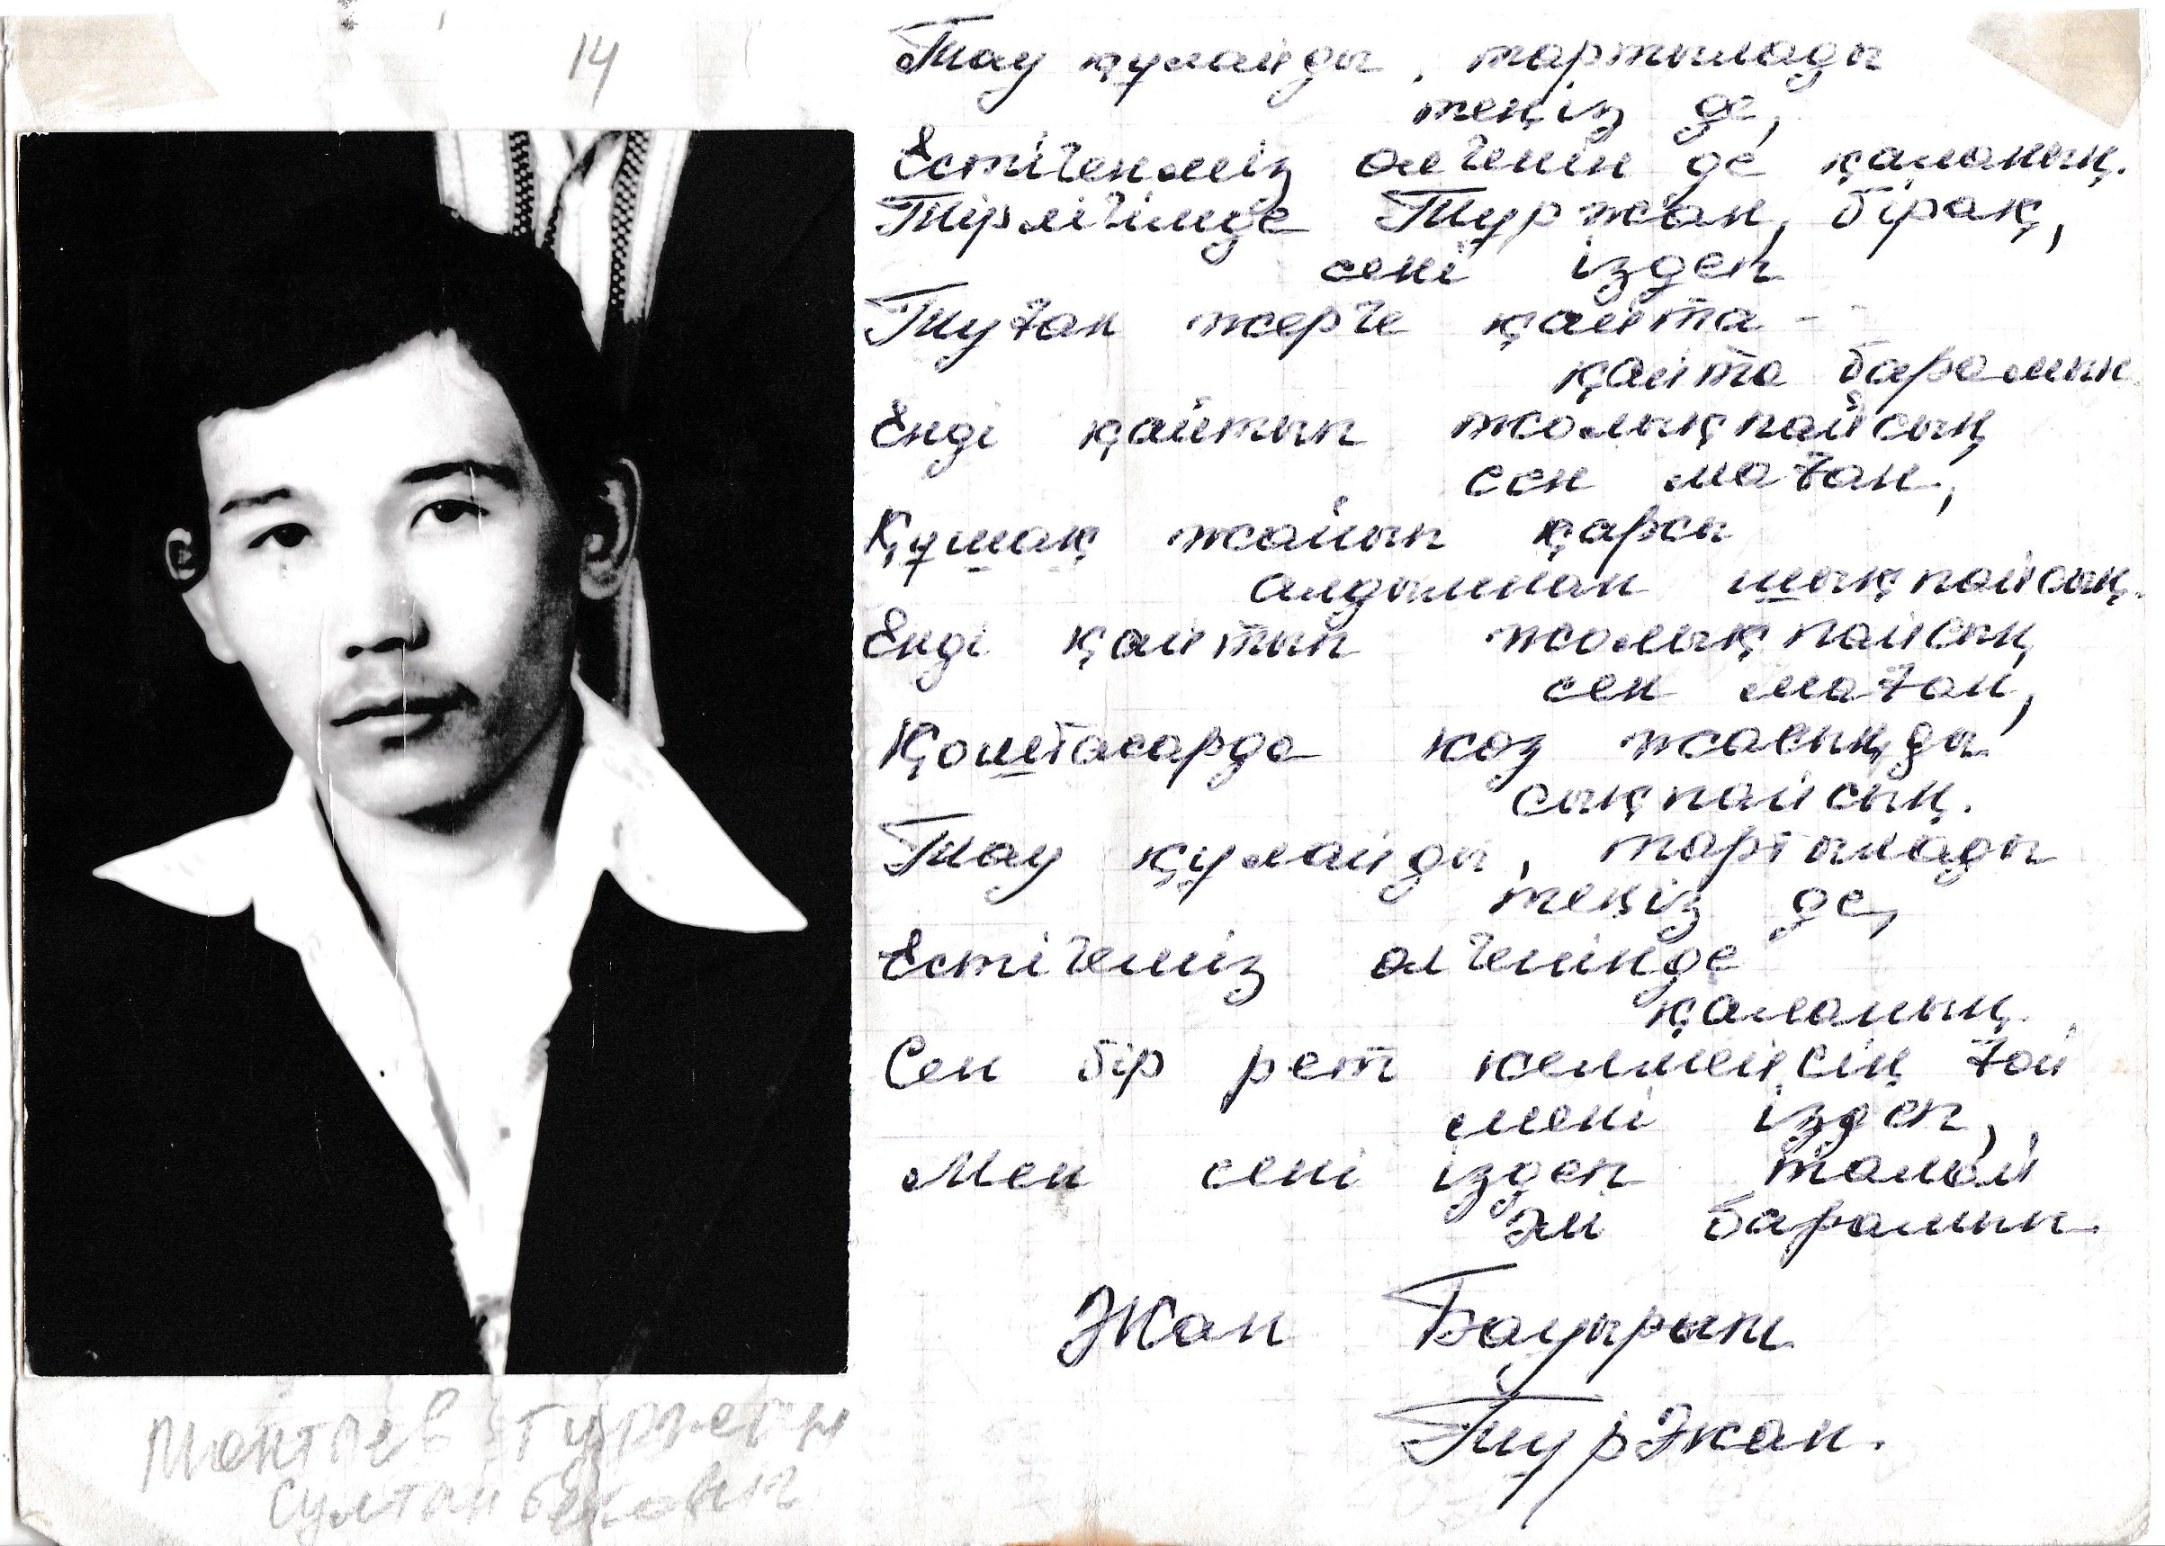 14
Тау құлайды, тартылады
теңіз де,
Естігенміз өлгенін де қаланың.
Тірлігімде Туржан, бірақ,
сені іздеп
Туған жерге қайта-
қайта барамын
Енді қайтып жолықпайсың
сен маған,
Құшақ жайып қарсы
алдымнан шықпайсың.
Енді қайтып жолықпайсың
сен маған,
Қоштасарда көз жасыңды
сықпайсың.
Тау құлайды, тартылады
теңіз де,
Естігеміз өлгенінде
қаланың.
Сен бір рет келмейсің ғой
мені іздеп,
Мен сені іздеп талай
әлі барамын.
Жан Бауырым
ТурЖан.
Султанбекович